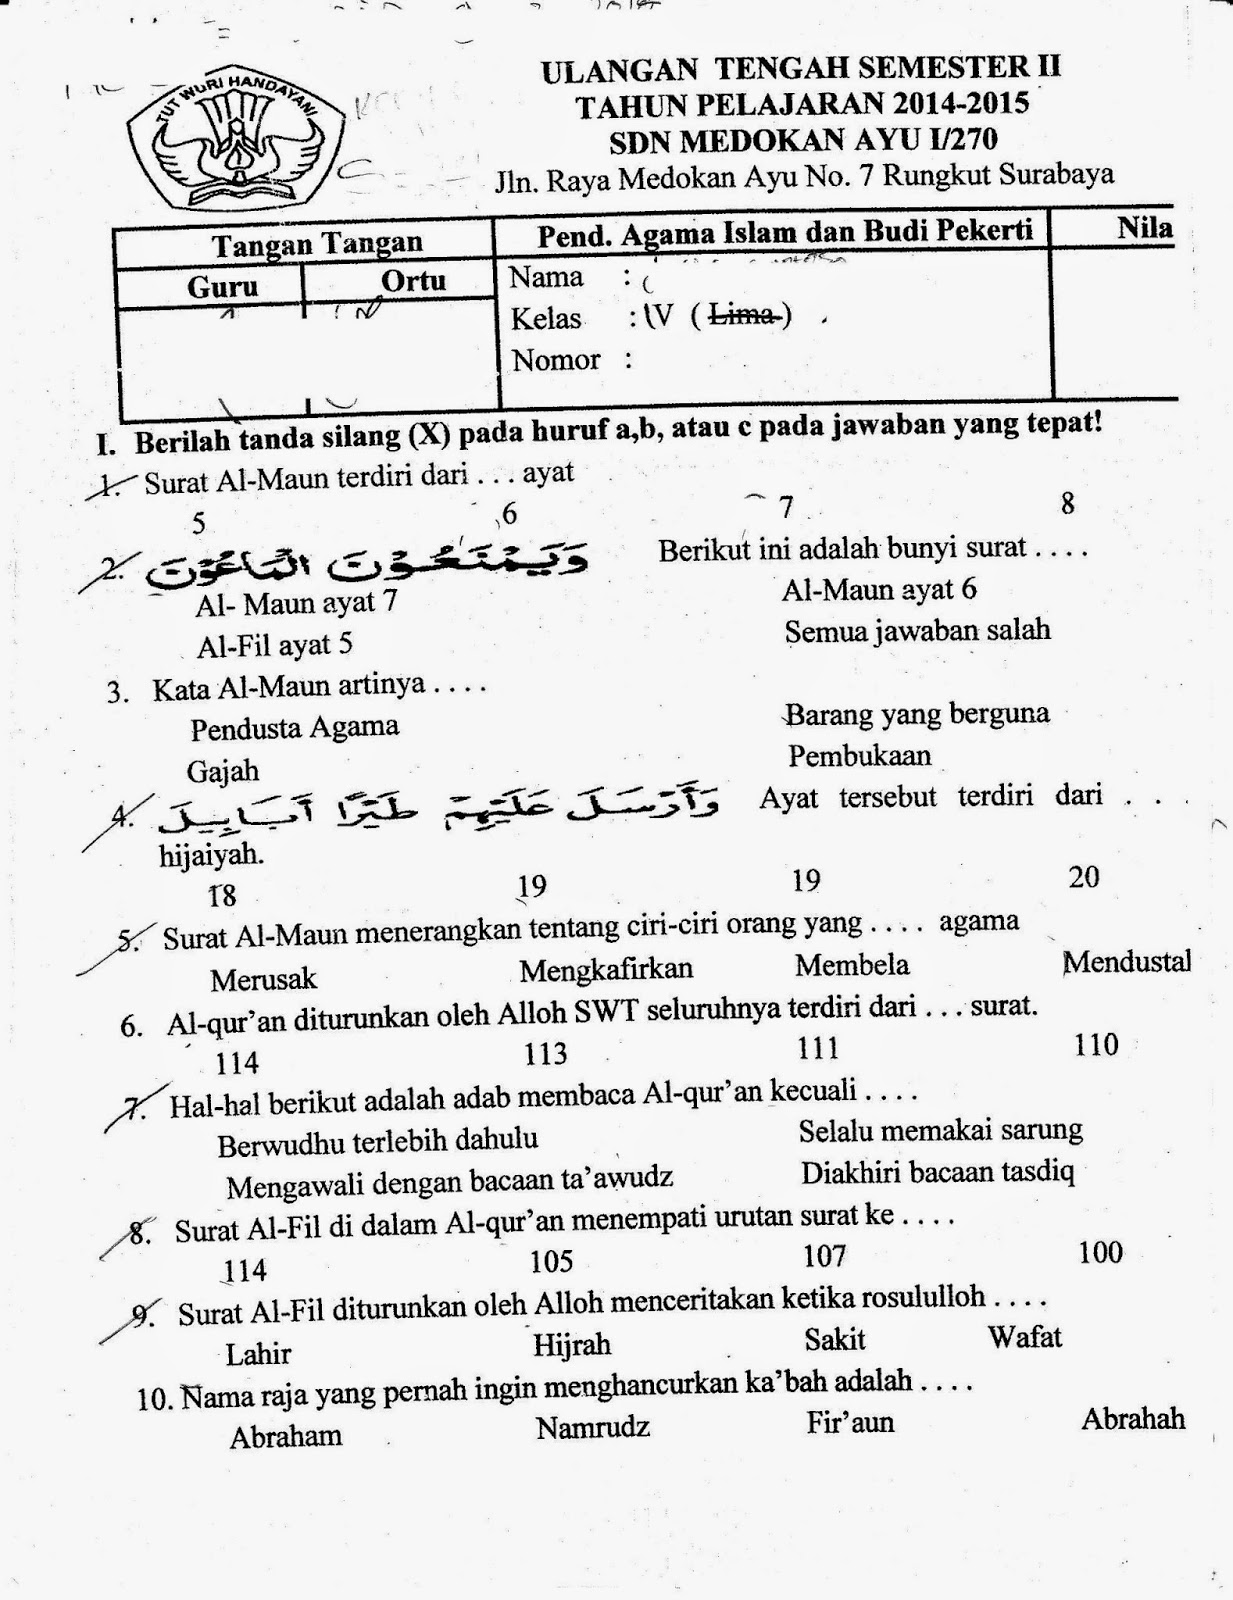 TUT WURI HANDAYANI
ULANGAN TENGAH SEMESTER II
TAHUN PELAJARAN 2014-2015
SDN MEDOKAN AYU I/270
Jln. Raya Medokan Ayu No. 7 Rungkut Surabaya
Tangan Tangan
Guru Ortu
Pend. Agama Islam dan Budi Pekerti
Nila
Nama :
Kelas : IV ( Lima )
Nomor :
I. Berilah tanda silang (X) pada huruf a,b, atau c pada jawaban yang tepat!
1. Surat Al-Maun terdiri dari . . . ayat
5 6 7 8
2. وَيَمْنَعُوْنَ الْمَاعُوْنَ Berikut ini adalah bunyi surat . . . .
Al- Maun ayat 7 Al-Maun ayat 6
Al-Fil ayat 5 Semua jawaban salah
3. Kata Al-Maun artinya . . . .
Pendusta Agama Barang yang berguna
Gajah Pembukaan
4. وَأَرْسَلَ عَلَيْهِمْ طَيْرًا أَبَابِيلَ Ayat tersebut terdiri dari . . .
hijaiyah.
18 19 19 20
5. Surat Al-Maun menerangkan tentang ciri-ciri orang yang . . . . agama
Merusak Mengkafirkan Membela Mendustal
6. Al-qur'an diturunkan oleh Alloh SWT seluruhnya terdiri dari . . . surat.
114 113 111 110
7. Hal-hal berikut adalah adab membaca Al-qur'an kecuali . . . .
Berwudhu terlebih dahulu Selalu memakai sarung
Mengawali dengan bacaan ta'awudz Diakhiri bacaan tasdiq
8. Surat Al-Fil di dalam Al-qur'an menempati urutan surat ke . . . .
114 105 107 100
9. Surat Al-Fil diturunkan oleh Alloh menceritakan ketika rosululloh . . . .
Lahir Hijrah Sakit Wafat
10. Nama raja yang pernah ingin menghancurkan ka'bah adalah . . . .
Abraham Namrudz Fir'aun Abrahah